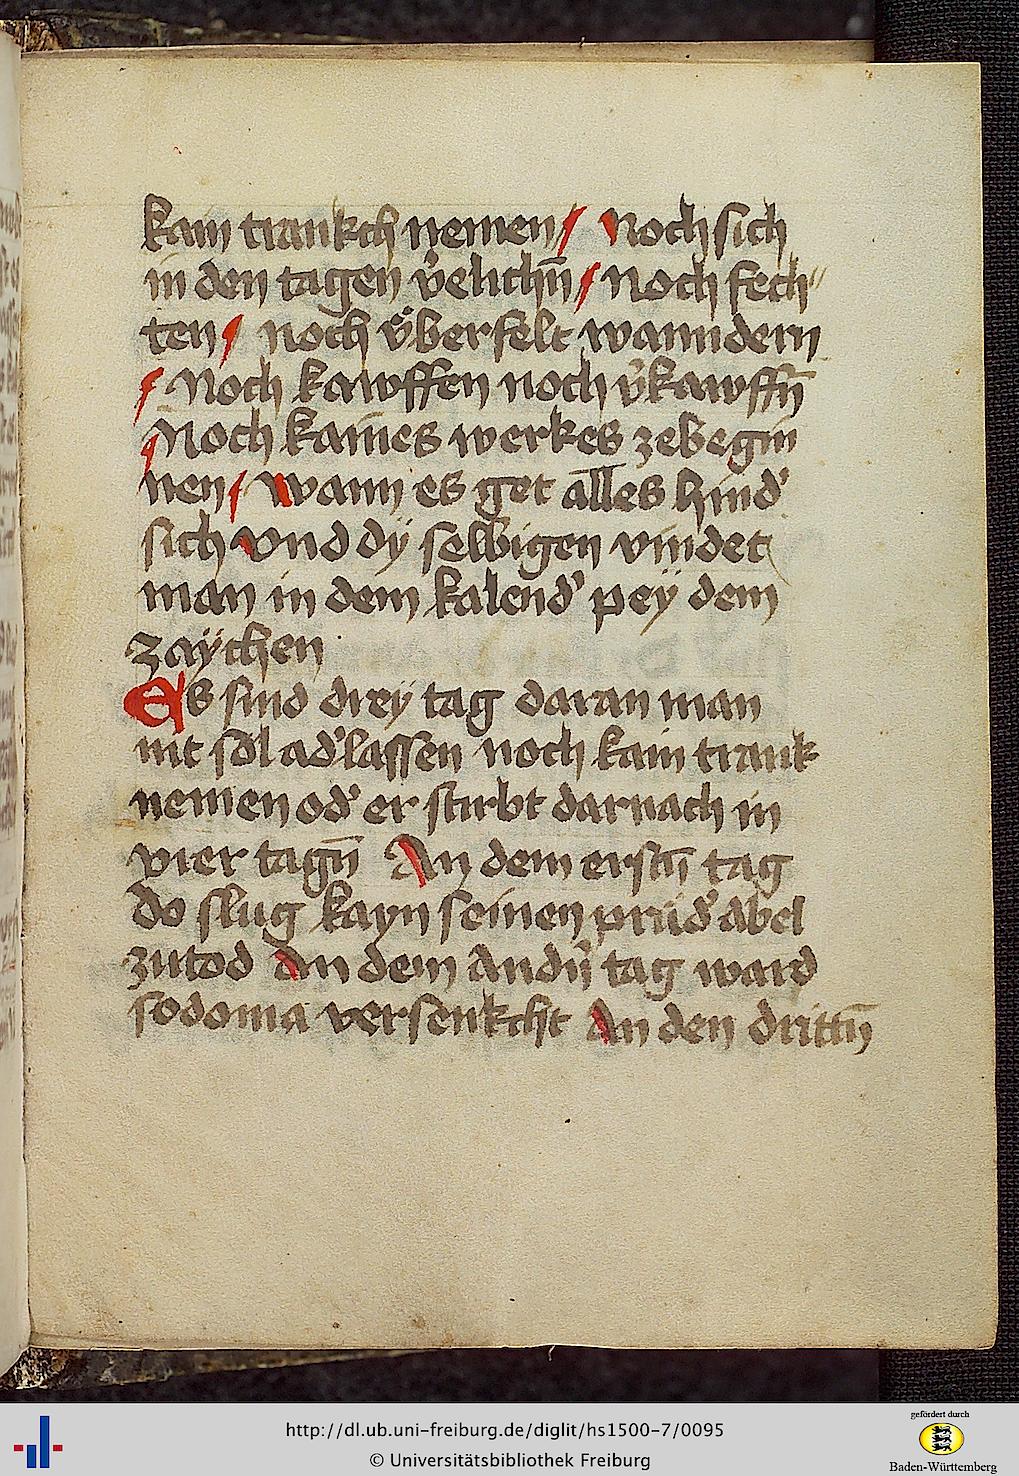 kain trankch nemen / Noch sich
in den tagen v̉elichn̄ / Noch fech⸗
ten / noch v̈berfelt wanndern
/ Noch kawffen noch v̉kawffn̄
/ Noch kaines werkes zebegin
nen / wann es get alles hind̉
sich vnd dÿ selbigen vindet
man in dem kalend̉ peÿ dem
zaÿchen
Es sind dreÿ tag daran man
nit sol ad̉lassen noch kain trank
nemen od̉ er stirbt darnach in
vier tagn̄ An dem erstn̄ tag
do slug kayn seinen prüd̉ abel
zutod An dem Andn̉ tag ward
sodoma versenkcht An den drittn̄
http://dl.ub.uni-freiburg.de/diglit/hs1500-7/0095
© Universitätsbibliothek Freiburg
gefördert durch
Baden-Württemberg